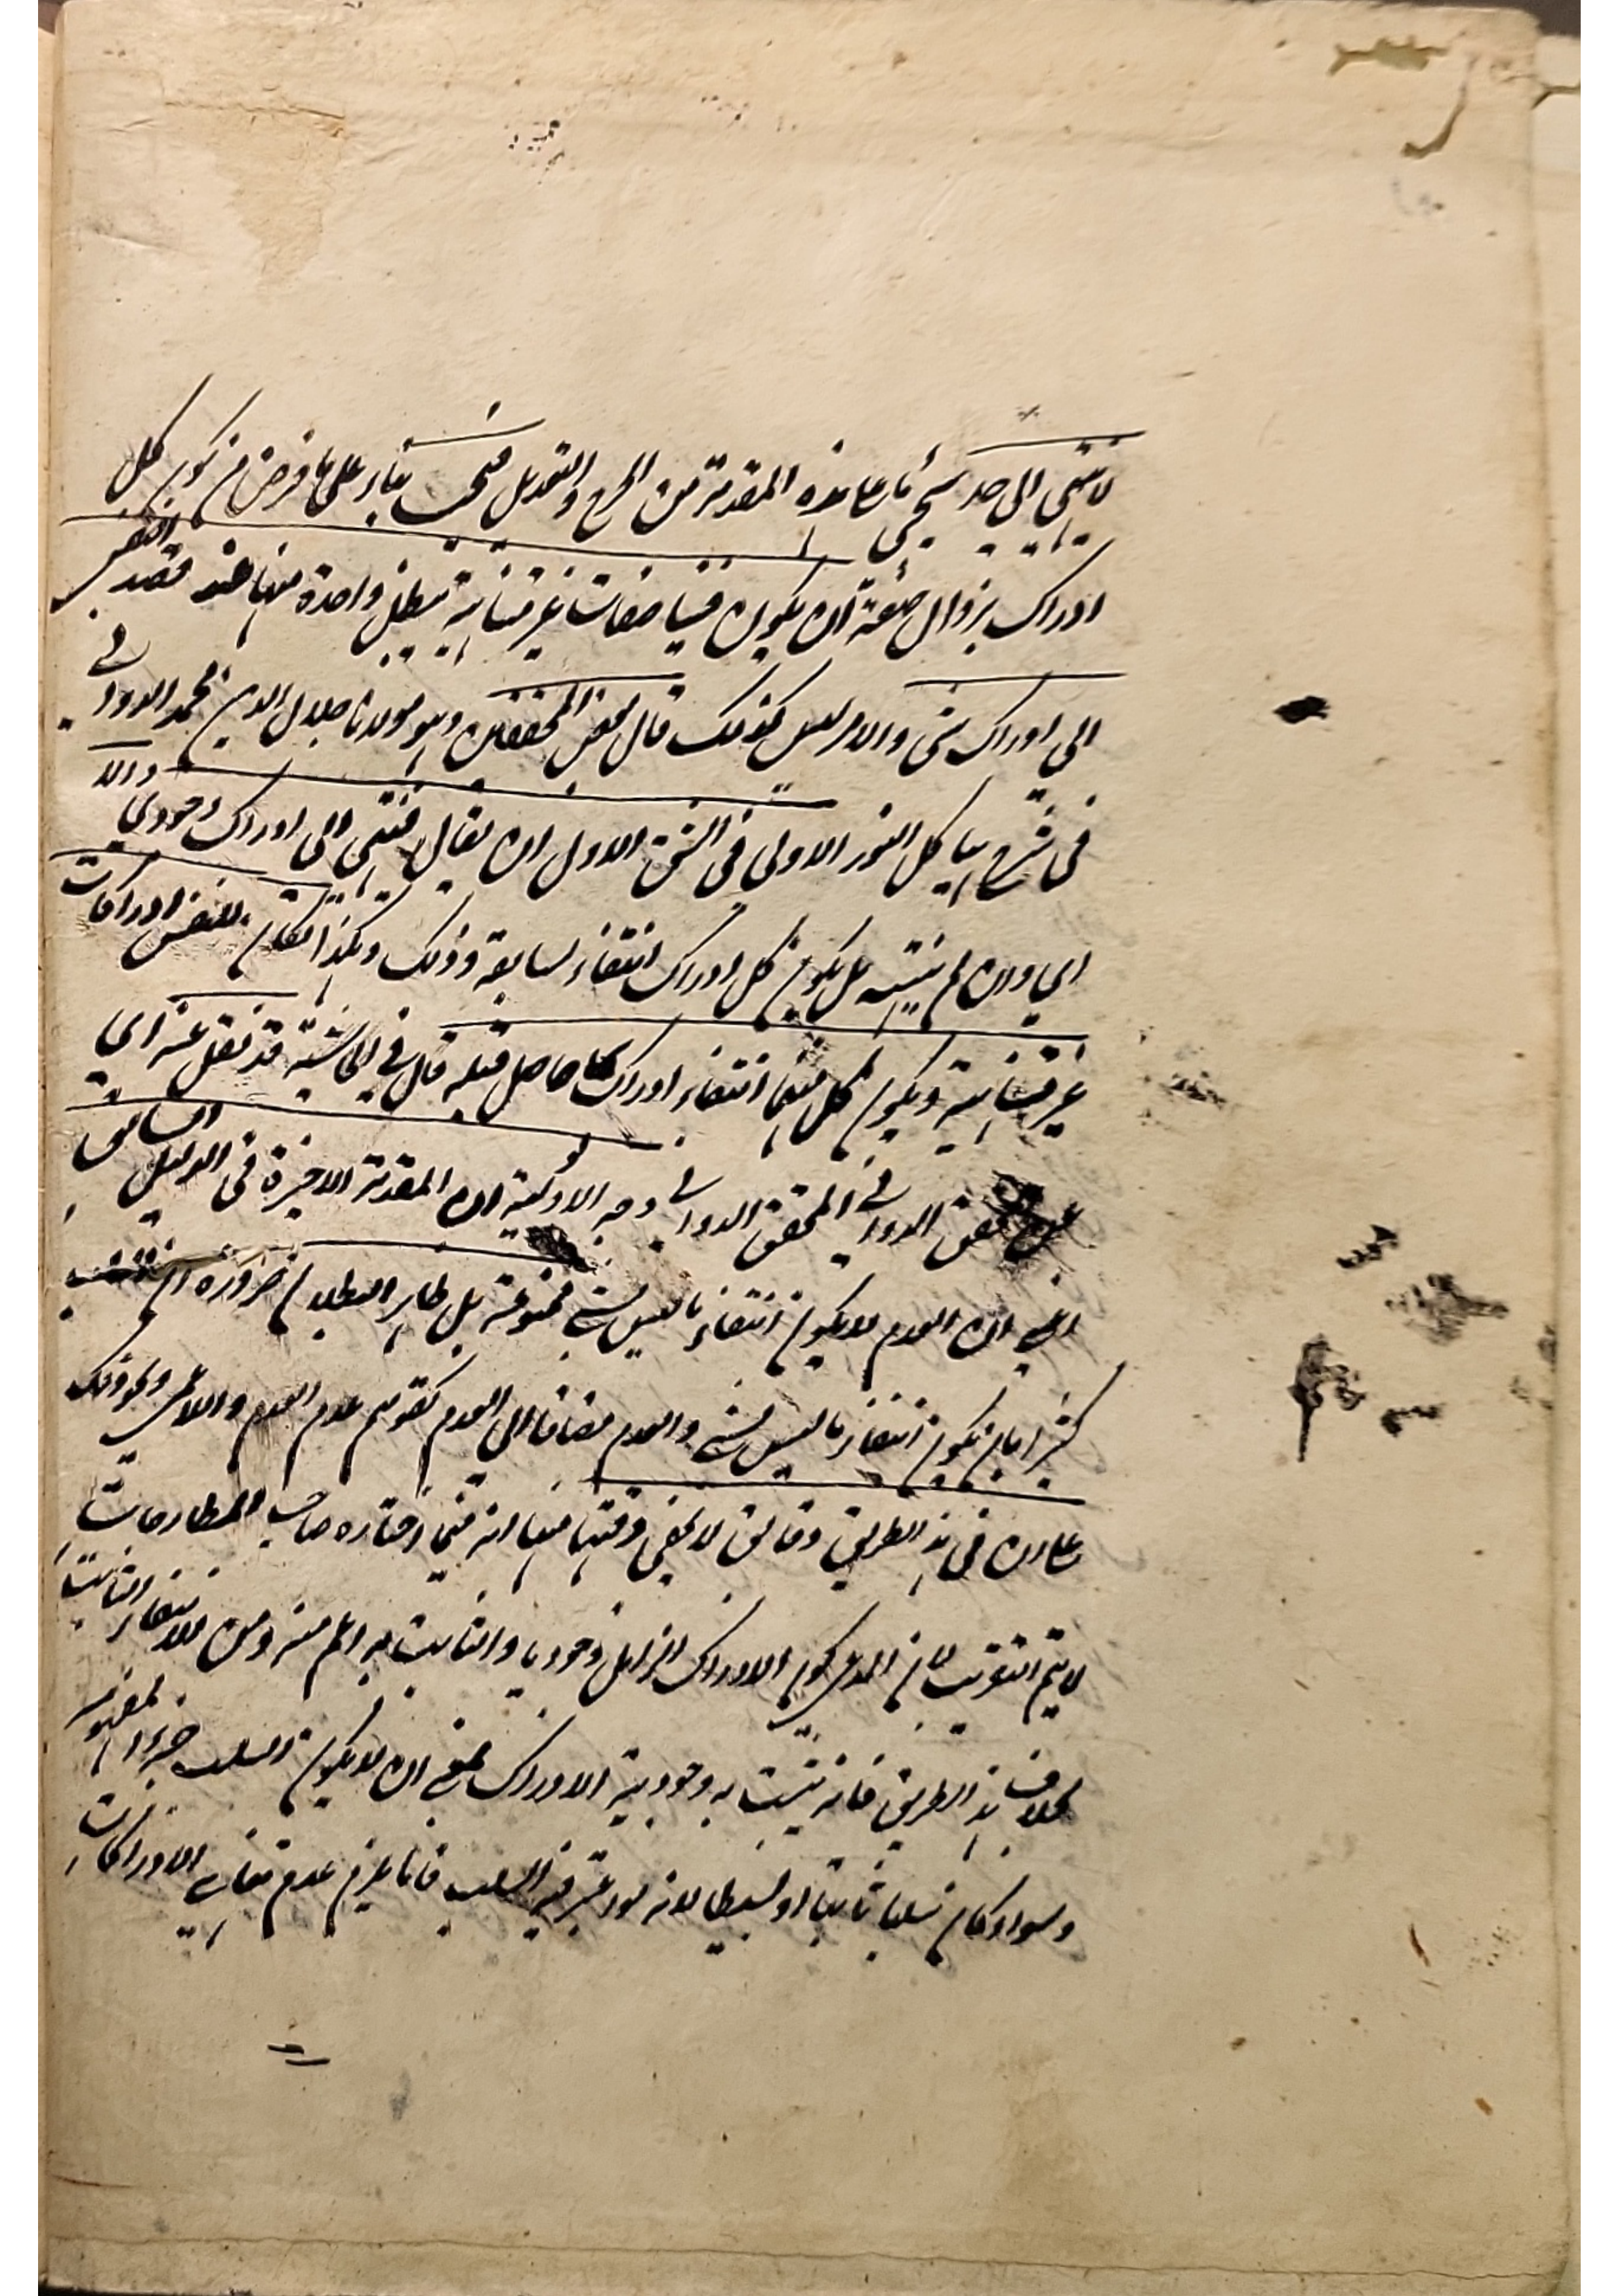 لا ينتهي الى حد سيجي ما على هذه المقدمة من الجرح والتعديل فيجب بناء على ما فرض من كون كل
ادراك بزوال صفة ان يكون فينا صفات غير متناهية يبطل واحدة منها عند قصد النفس
الى ادراك شئ والامر ليس كذلك قال بعض المحققين وهو مولانا جلال الدين محمد الدواني
في شرح هياكل النور الاولى في الشق الاول ان يقال فينتهي الى ادراك وجودي والا
اي وان لم ينته بل يكون كل ادراك انتفاء لسابقه وذلك وهكذا لكان للنفس ادراكات
غير متناهية ويكون كل منها انتفاء ادراك حاصل قبله قال في الحاشية قد نقل عنه اي
عن المحقق الدواني المحقق الدواني وجه الاولوية ان المقدمة الاخيرة في الدليل السابق
اعني ان العدم لا يكون انتفاء ما ليس بشئ ممنوعة بل ظاهر البطلان ضرورة ان
كثيرا ما يكون انتفاء ما ليس بشئ والعدم مضافا الى العدم كقولهم عدم العدم واللاعمى ونحو ذلك
على ان في هذا الطريق دقائق لا يخفى دقتها منها انه فيما اختاره صاحب المطارحات
لا يتم التقريب لان المدعى كون الادراك الزائل وجوديا والثابت به اعم منه ومن الانتفاء الثابت
بخلاف هذا الطريق فانه يثبت به وجودية الادراك بمعنى ان لا يكون السلب جزءا لمفهومه
وسواء كان سلبا ثابتا او بسيطا لانه لو اعتبر فيه السلب فانما يلزم عدم تناهي الادراكات